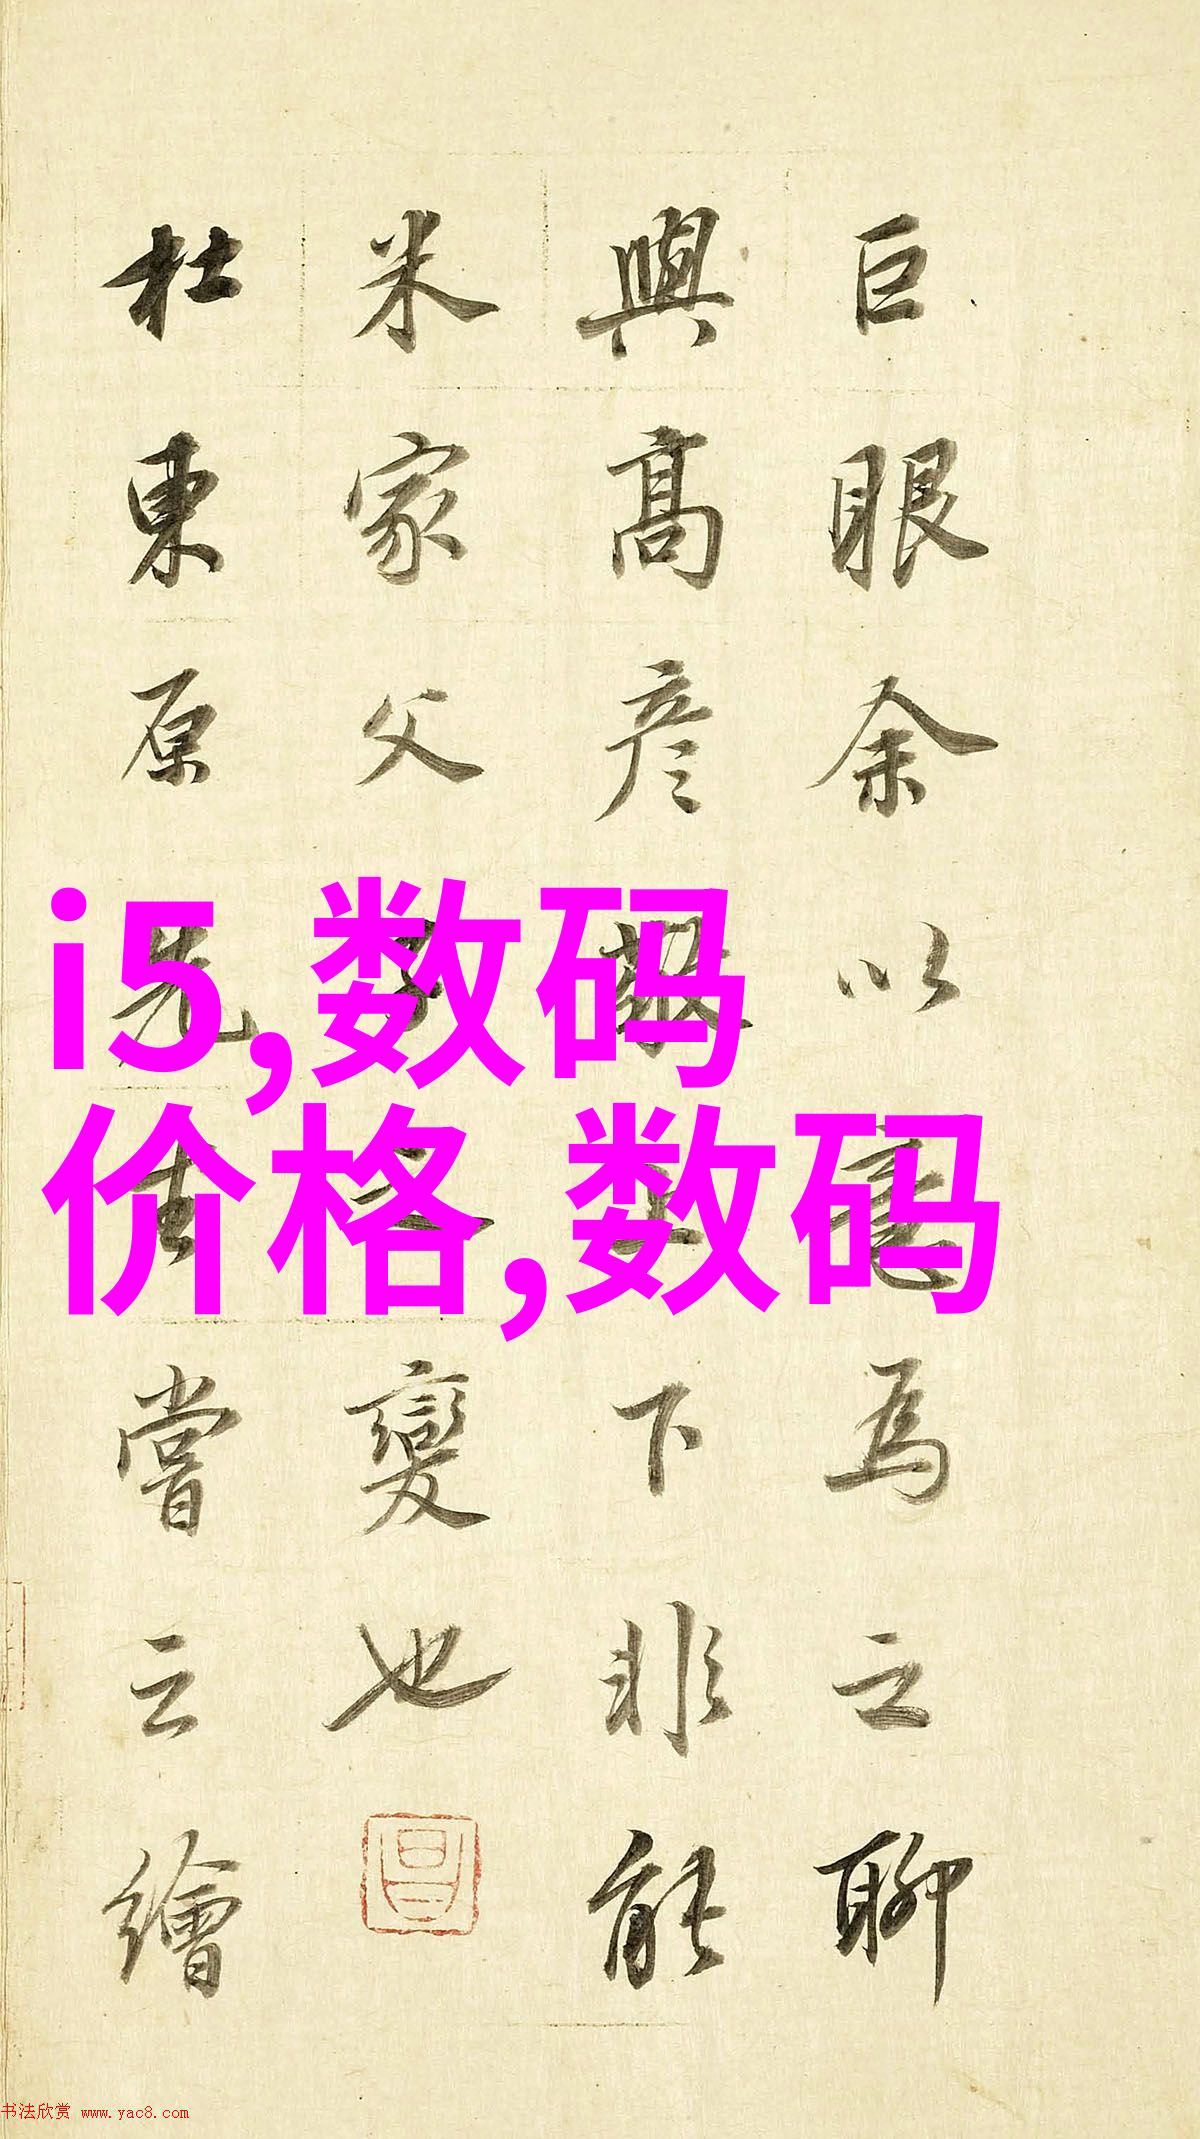 巨眼余以意為之聊
與高彦敬上下非能
米家父子之變也
杜東原先生嘗云繪
i5,数码
价格,数码
书法欣赏 www.yac8.com